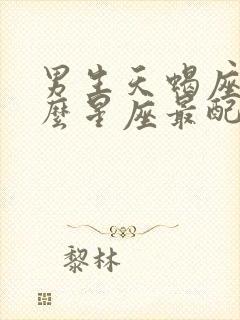 男生天蝎座
麼星座最配
黎林